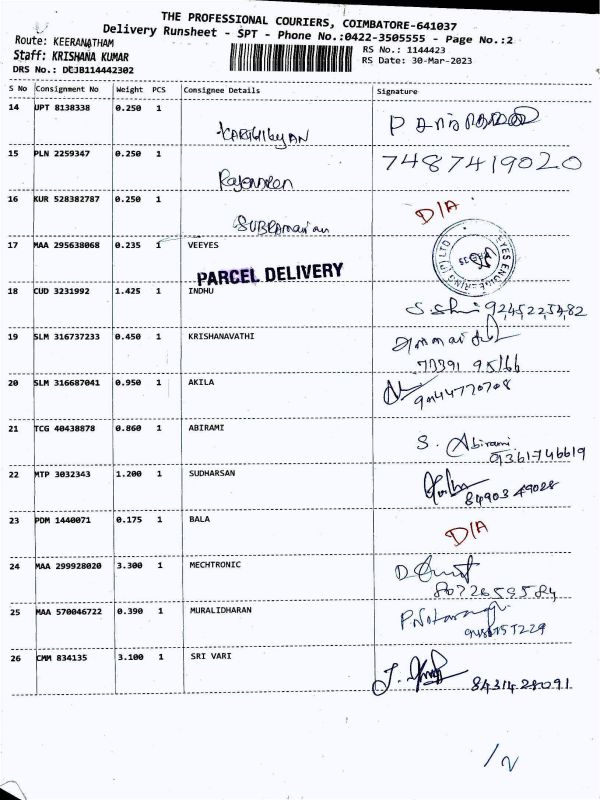 THE PROFESSIONAL COURIERS, COIMBATORE-641037
Delivery Runsheet - SPT - Phone No.:0422-3505555 - Page No.:2
Route: KEERANATHAM
RS No.: 1144423
Staff: KRISHANA KUMAR
RS Date: 30-Mar-2023
DRS No.: DEJB114442302
S No Consignment No Weight PCS Consignee Details Signature
14 UPT 8138338 0.250 1
15 PLN 2259347 0.250 1 7487419020
Rajendren
16 KUR 528382787 0.250 1 D/A
17 MAA 295638068 0.235 1 VEEYES
PARCEL DELIVERY
18 CUD 3231992 1.425 1 INDHU
19 SLM 316737233 0.450 1 KRISHANAVATHI
20 SLM 316687041 0.950 1 AKILA
9044770708
21 TCG 40438878 0.860 1 ABIRAMI
S. Abirami
9361746619
22 MTP 3032343 1.200 1 SUDHARSAN
8490349028
23 PDM 1440071 0.175 1 BALA
D/A
24 MAA 299928020 3.300 1 MECHTRONIC
8072659584
25 MAA 570046722 0.390 1 MURALIDHARAN
26 CMM 834135 3.100 1 SRI VARI
8431428091